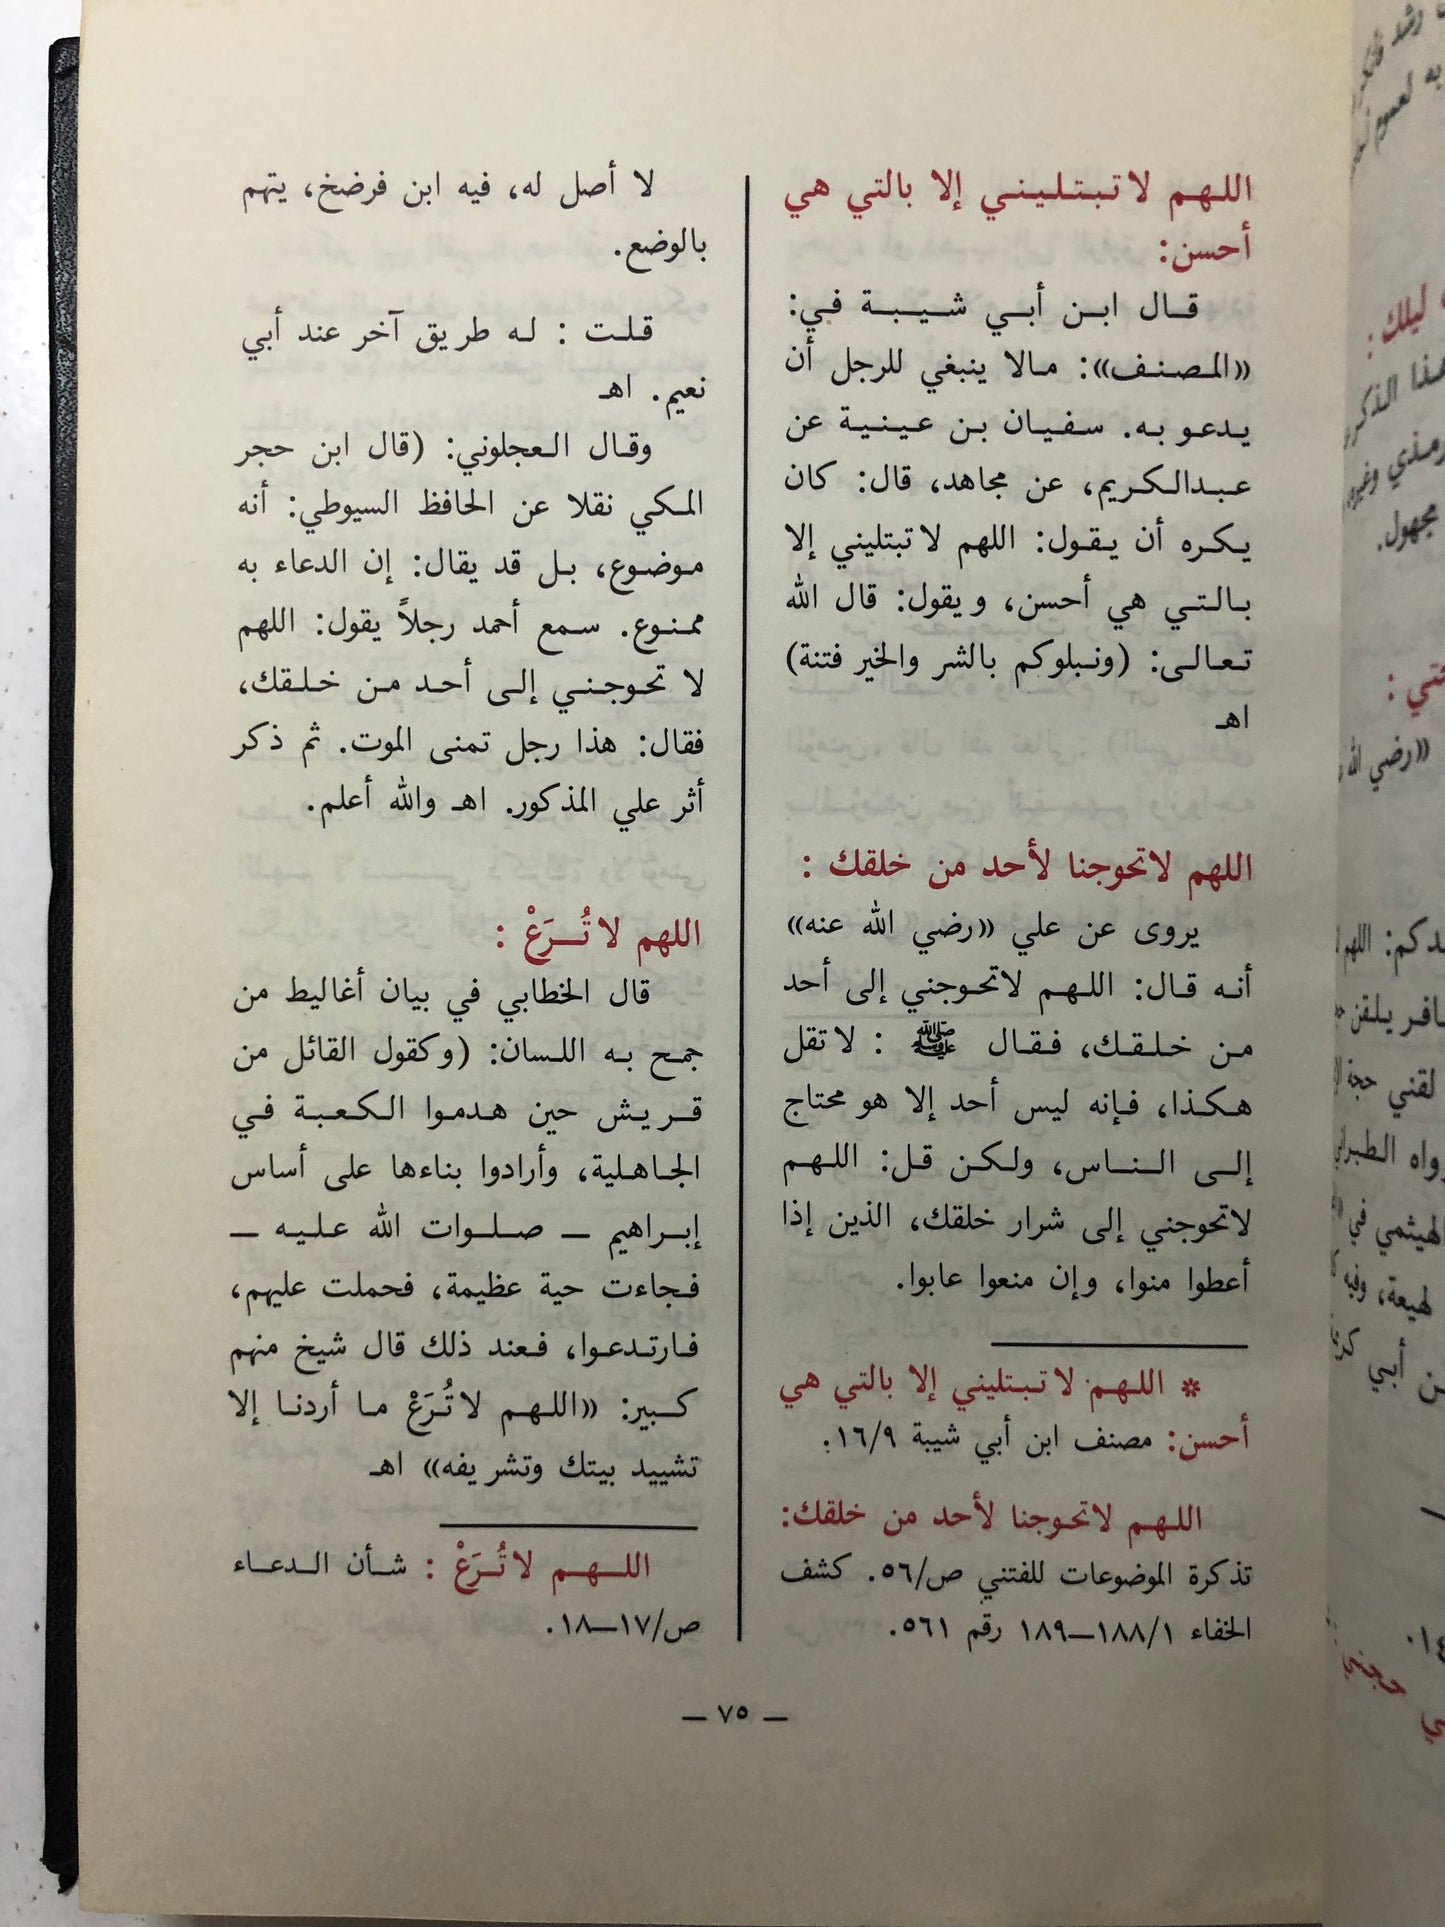 اللهم لا تبتليني إلا بالتي هي
أحسن:
قال ابن أبي شيبة في:
«المصنف»: مالا ينبغي للرجل أن
يدعو به. سفيان بن عينية عن
عبدالكريم، عن مجاهد، قال: كان
يكره أن يقول: اللهم لا تبتليني إلا
بالتي هي أحسن، ويقول: قال الله
تعالى: (ونبلوكم بالشر والخير فتنة)
اهـ
اللهم لا تحوجنا لأحد من خلقك :
يروى عن علي «رضي الله عنه»
أنه قال: اللهم لا تحوجني إلى أحد
من خلقك، فقال ﷺ : لا تقل
هكذا، فإنه ليس أحد إلا هو محتاج
إلى الناس، ولكن قل: اللهم
لا تحوجني إلى شرار خلقك، الذين إذا
أعطوا منوا، وإن منعوا عابوا.
* اللهم لا تبتليني إلا بالتي هي
أحسن: مصنف ابن أبي شيبة ١٦/٩.
اللهم لا تحوجنا لأحد من خلقك:
تذكرة الموضوعات للفتني ص/٥٦. كشف
الخفاء ١/١٨٨ــ١٨٩ رقم ٥٦١.
لا أصل له، فيه ابن فرضخ، يتهم
بالوضع.
قلت : له طريق آخر عند أبي
نعيم. اهـ
وقال العجلوني: (قال ابن حجر
المكي نقلا عن الحافظ السيوطي: أنه
موضوع، بل قد يقال: إن الدعاء به
ممنوع. سمع أحمد رجلاً يقول: اللهم
لا تحوجني إلى أحد من خلقك،
فقال: هذا رجل تمنى الموت. ثم ذكر
أثر علي المذكور. اهـ والله أعلم.
اللهم لا تُرَعْ :
قال الخطابي في بيان أغاليط من
جمح به اللسان: (وكقول القائل من
قريش حين هدموا الكعبة في
الجاهلية، وأرادوا بناءها على أساس
إبراهيم ــ صلوات الله عليه ــ
فجاءت حية عظيمة، فحملت عليهم،
فارتدعوا، فعند ذلك قال شيخ منهم
كبير: «اللهم لا تُرَعْ ما أردنا إلا
تشييد بيتك وتشريفه» اهـ
اللهم لا تُرَعْ : شأن الدعاء
ص/١٧ــ١٨.
ــ ٧٥ ــ